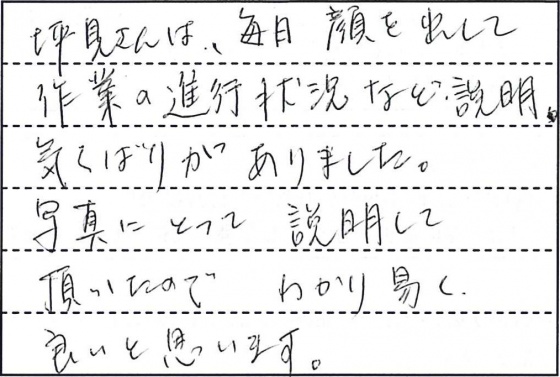 坪見さんは、毎日 顔を出して
作業の進行状況など説明、
気くばりがありました。
写真にとって 説明して
頂いたので わかり易く
良いと思います。